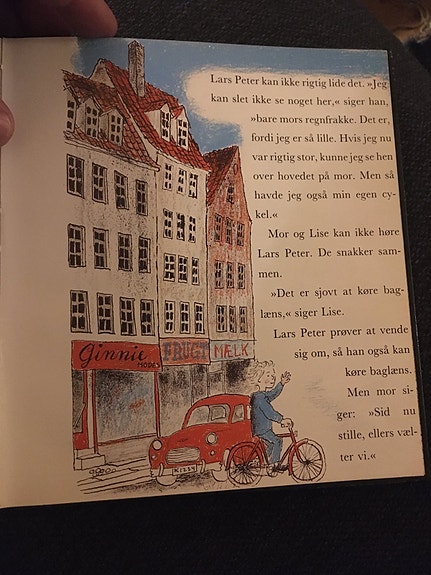 Lars Peter kan ikke rigtig lide det. »Jeg
kan slet ikke se noget her,« siger han,
»bare mors regnfrakke. Det er,
fordi jeg er så lille. Hvis jeg nu
var rigtig stor, kunne jeg se hen
over hovedet på mor. Men så
havde jeg også min egen cy-
kel.«
Mor og Lise kan ikke høre
Lars Peter. De snakker sam-
men.
»Det er sjovt at køre bag-
læns,« siger Lise.
Lars Peter prøver at vende
sig om, så han også kan
køre baglæns.
Men mor si-
ger: »Sid nu
stille, ellers væl-
ter vi.«
Ginnie
MODES
FRUGT
MÆLK
K1234